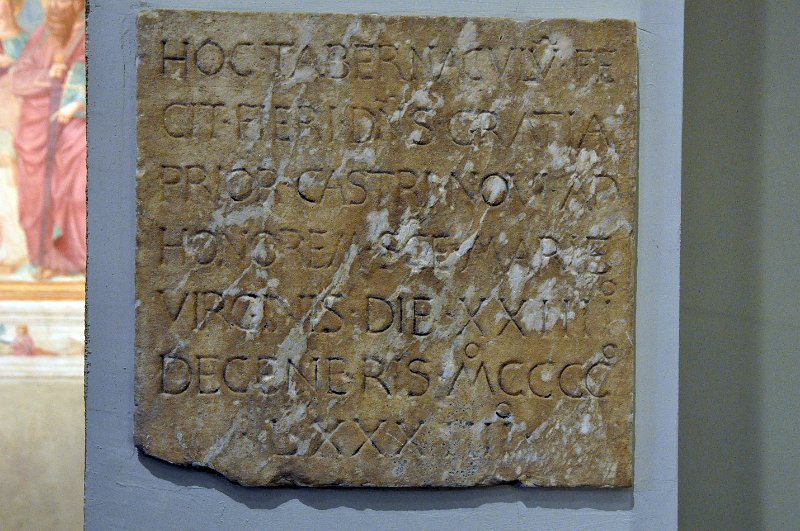 HOC·TABERNACVLV·FE
CIT·FIERI·DN̄S·GRATIA
PRIOR·CASTRI·NOVI·AD
HONOREM·SCE·MARIE
VIRGINIS·DIE·XXIIII°
DECENERIS·M°CCCC°
LXXXIIII°